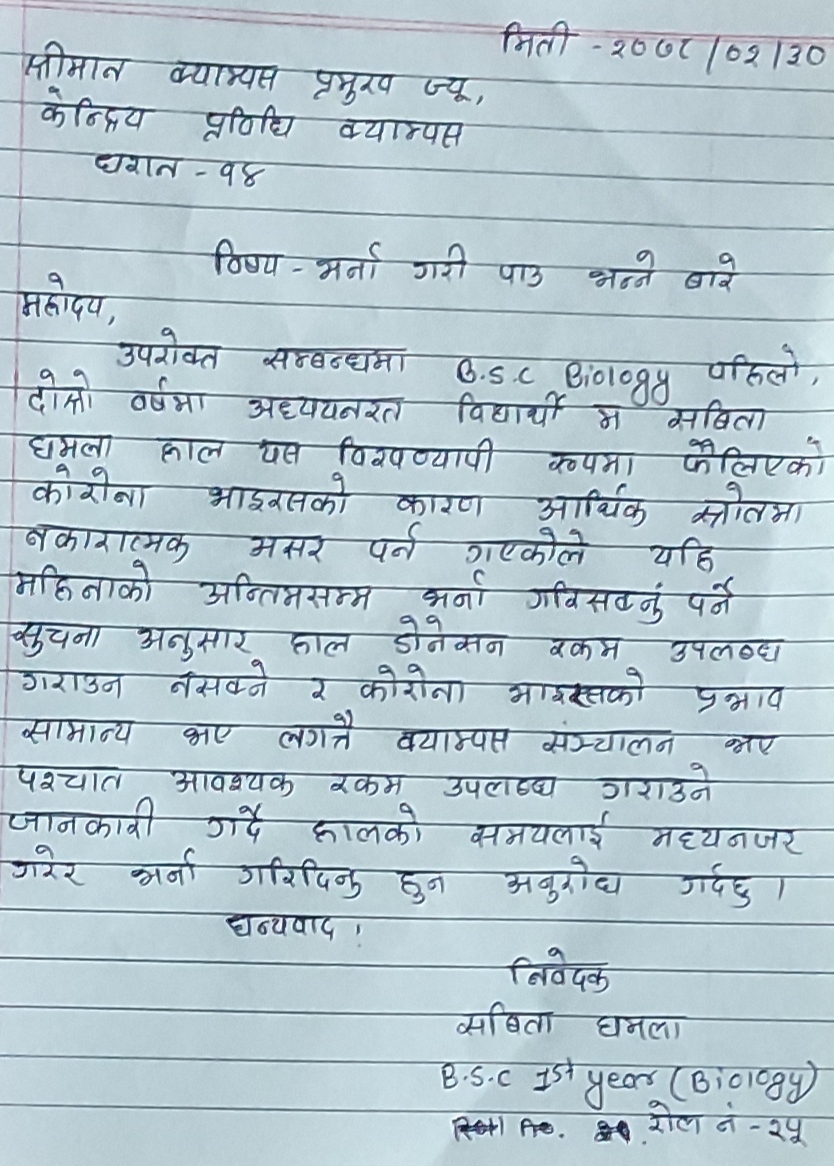 मिती - २०७८/०२/३०
श्रीमान क्याम्पस प्रमुख ज्यू,
केन्द्रिय प्रविधि क्याम्पस
धरान - १४
विषय - भर्ना गरी पाउ भन्ने बारे
महोदय,
उपरोक्त सम्बन्धमा B.S.C Biology पहिलो,
दोस्रो वर्षमा अध्ययनरत विद्यार्थी म सबिता
धमला हाल यस विश्वव्यापी रूपमा फैलिएको
कोरोना भाइरसको कारण आर्थिक स्रोतमा
नकारात्मक असर पर्न गएकोले यहि
महिनाको अन्तिमसम्म भर्ना गरिसक्नुं पर्ने
सुचना अनुसार हाल डोनेसन रकम उपलब्ध
गराउन नसक्ने र कोरोना भाइरसको प्रभाव
सामान्य भए लगत्तै क्याम्पस संञ्चालन भए
पश्चात आवश्यक रकम उपलब्ध गराउने
जानकारी गर्दै हालको समयलाई मध्यनजर
गरेर भर्ना गरिदिनु हुन अनुरोध गर्दछु ।
धन्यवाद ।
निवेदक
सबिता धमला
B.S.C 1st year (Biology)
रोल नं - २५